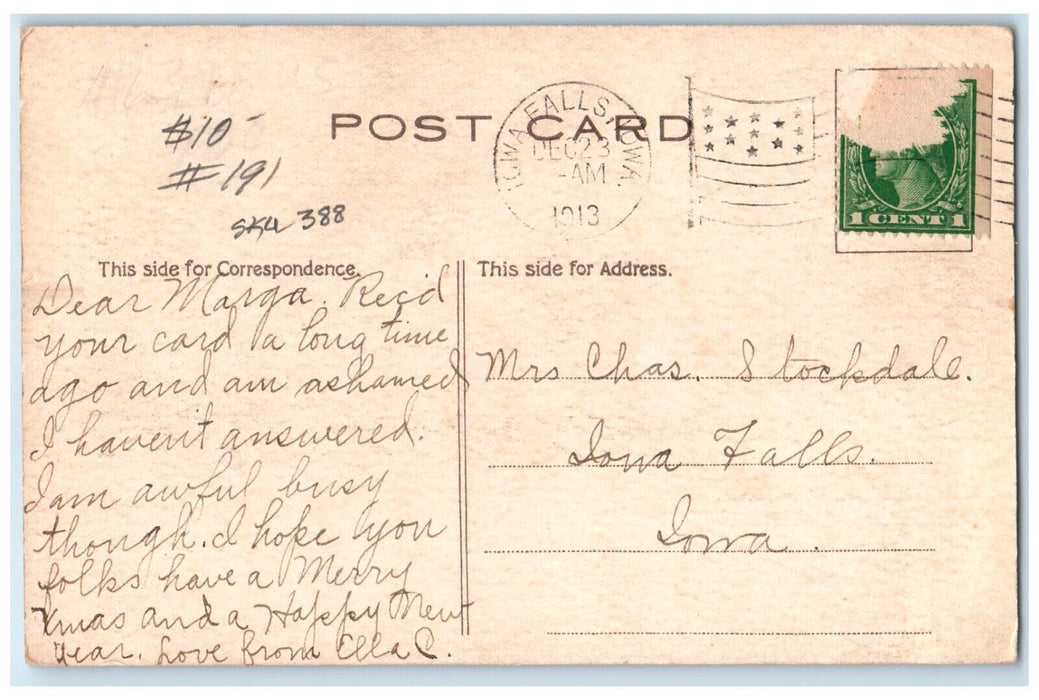 $10-
#191
SKU 388
POST CARD
IOWA FALLS, IOWA.
DEC 23
-AM
1913
1 CENT 1
This side for Correspondence.
Dear Marga. Rec'd
your card a long time
ago and am ashamed
I haven't answered.
I am awful busy
though. I hope you
folks have a Merry
Xmas and a Happy New
Year. Love from Ella C.
This side for Address.
Mrs Chas. Stockdale.
Iowa Falls.
Iowa.